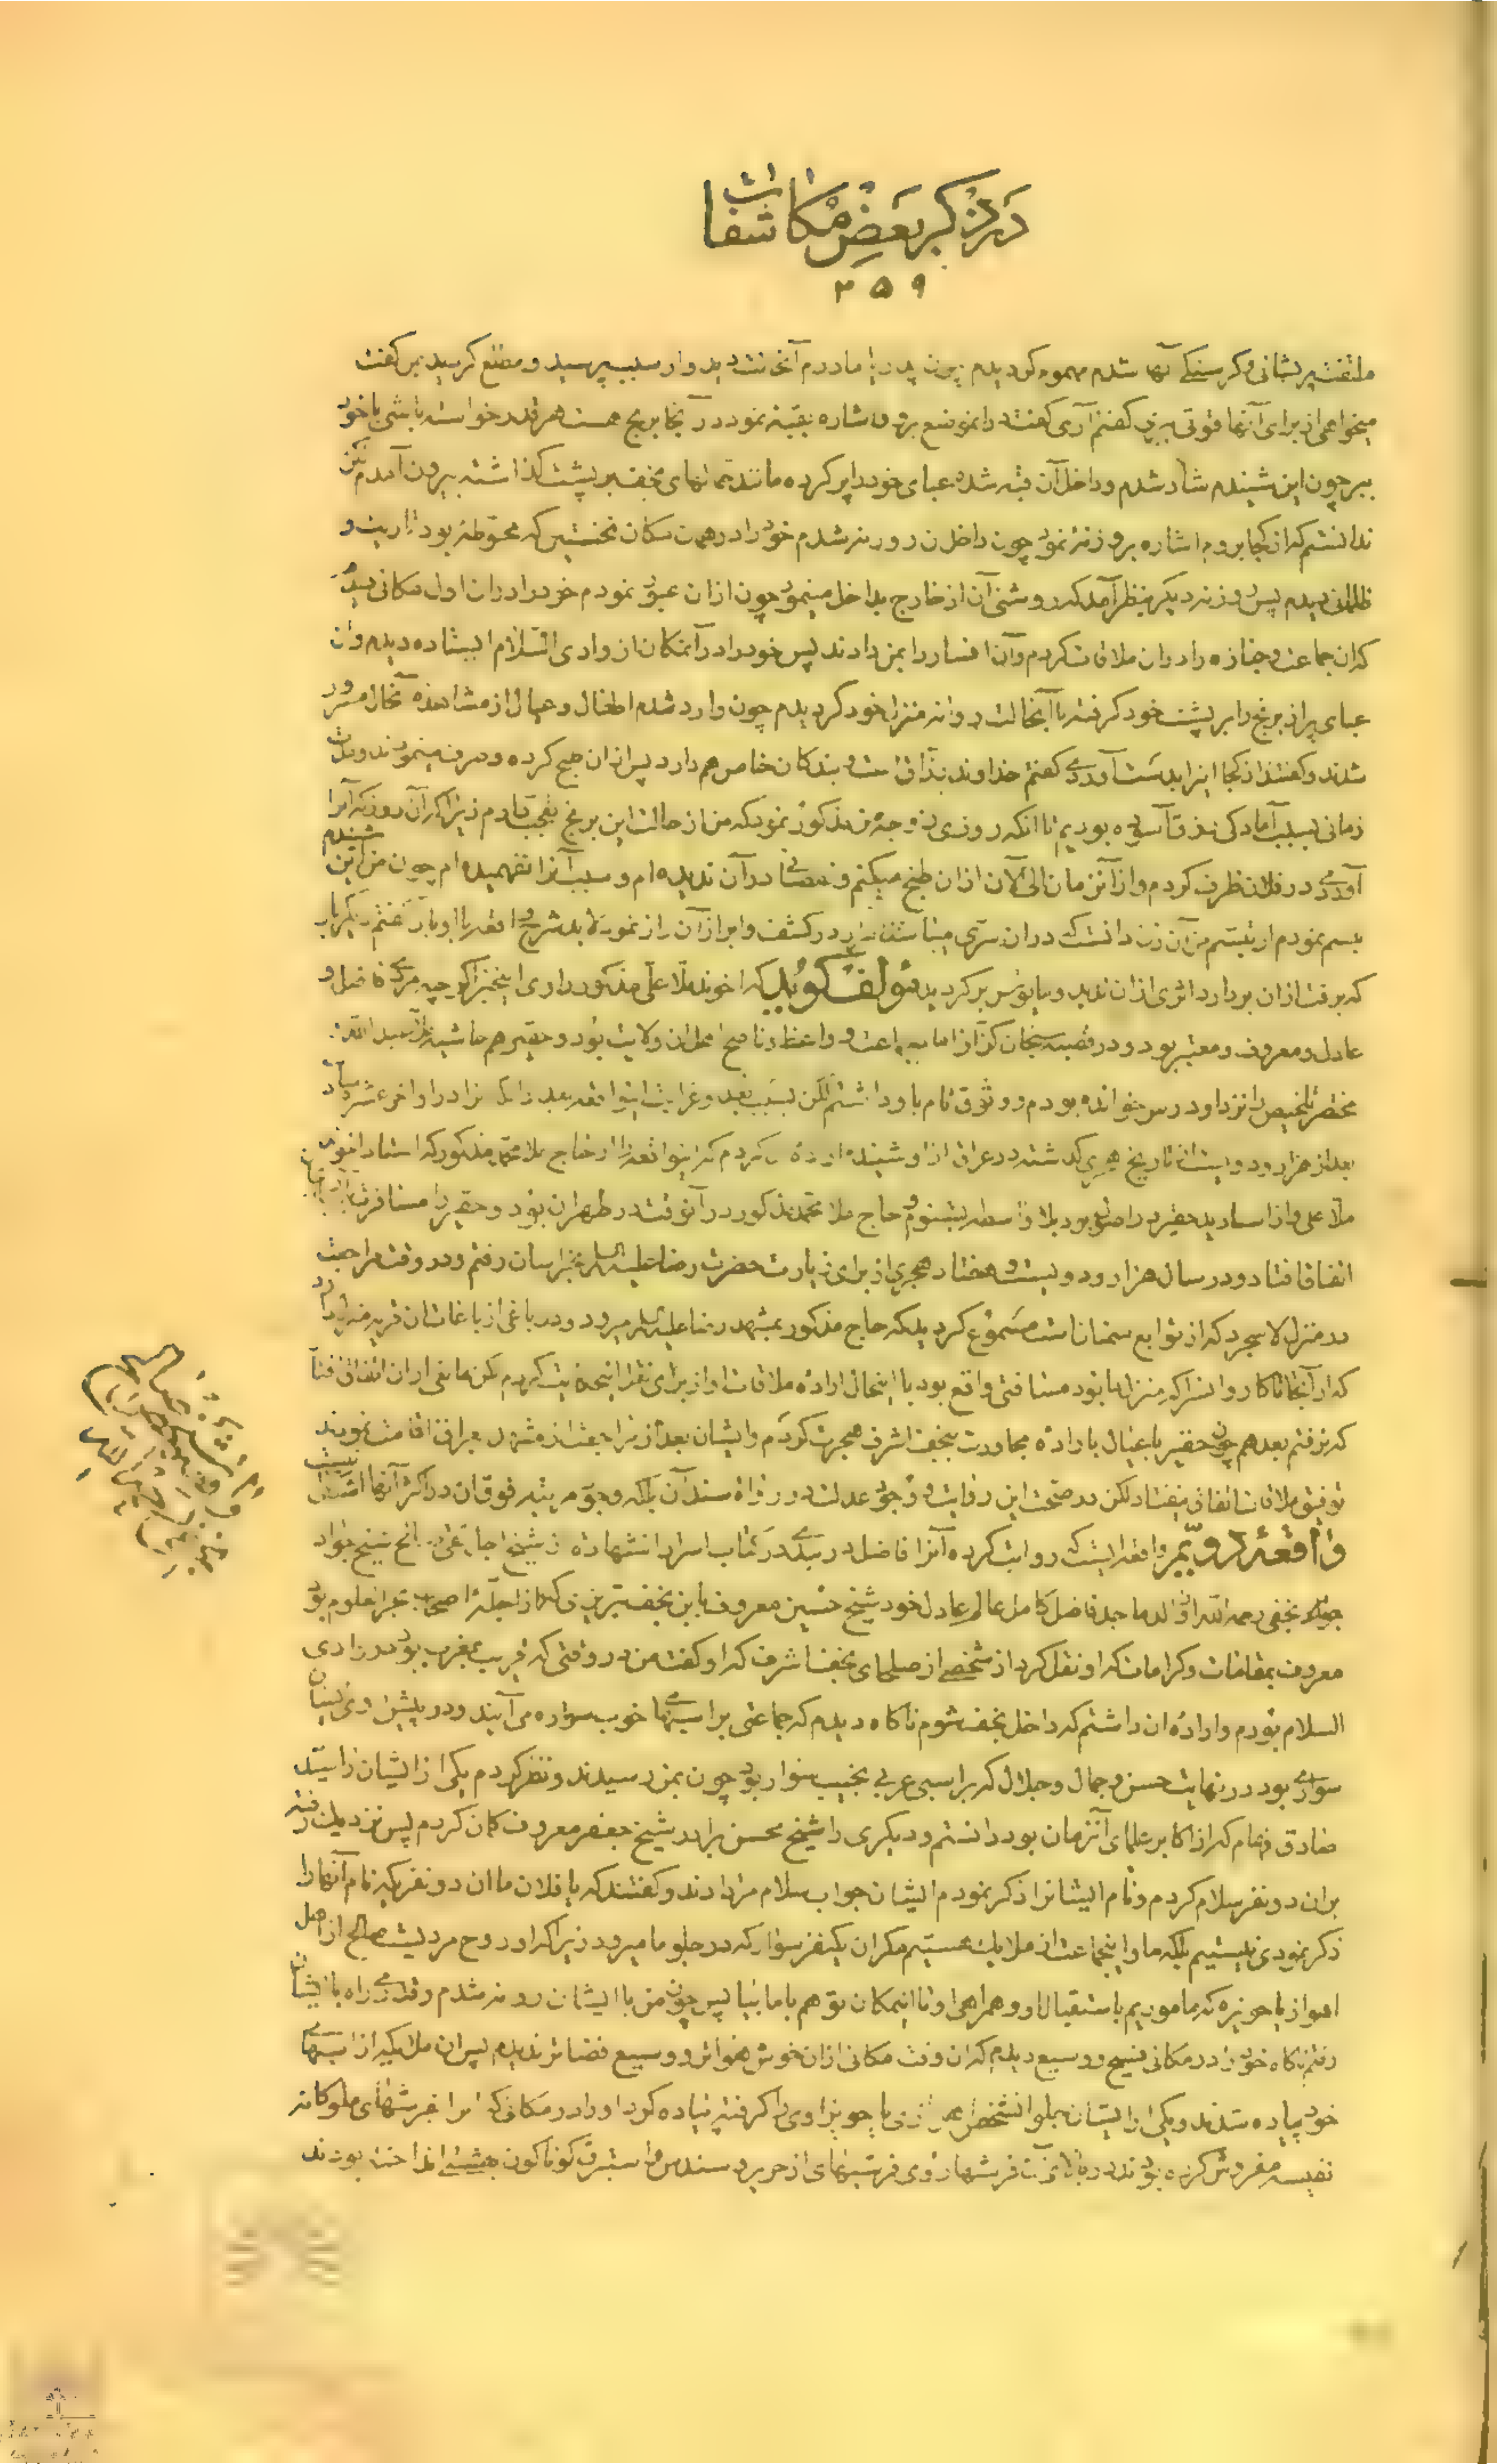 در ذکر بعض مکاشفات
۲۵۹
ملتفت پریشانی و کرسنکی آنها شدم مهموم کردیدم پدر یا مادرم آنحالت دید و از سبب پرسید و مطلع کردید بمن کفت
میخواهی از برای آنها قوتی ببری کفتم آری کفت اشاره بقبه نمود در آنجا برنج هست هر قدر خواسته باشی با خود
ببر چون این شنیدم شاد شدم و داخل آن قبه شده عبای خود را پر کرده مانند حمالهای نجف بر پشت کذاشته بیرون آمدم لکن
ندانستم که از کجا بروم اشاره بروزنه نمود چون داخل روزنه شدم خود را در همان مکان نخستین که محوطهٔ بود تاریک و
ظلمانی دیدم پس روزنه دیکر بنظر آمد که روشنی آن از خارج بداخل مینمود چون از آن عبور نمودم خود را در آن اول مکانی دیدم
که آن جماعت و جنازه را در آن ملاقات کردم و آن افسار را بمن دادند پس خود را در آنمکان از وادی السلام ایستاده دیدم و آن
عبای پر از برنج را بر پشت خود کرفته با آنحالت روانه منزل خود کردیدم چون وارد شدم اطفال و عیال از مشاهده آنحال مسرور
شدند و کفتند از کجا اینرا بدست آوردی کفتم خداوند رزاق است و بندکان خاص هم دارد پس از آن طبخ کرده و صرف مینمودند و مدت
زمانی بسبب آمادکی رزق آسوده بودیم تا آنکه روزی زوجه من مذکور نمود که من از حالت این برنج بتعجب آمدم زیرا که از آن روز که آنرا
آوردی در فلان ظرف کردم و از آنزمان الی الآن از آن طبخ میکنم و نقصانی در آن ندیده ام و سبب آنرا نفهمیده ام چون من این شنیدم
تبسم نمودم از تبسم من آن زن دانست که در آن سری میباشد در کشف و ابراز آن راز نمود تا بد شرح واقعه را با او باز کفتم دیکر بار
که برفت از آن بردارد اثری از آن ندید و مایوس برکردید مولف کوید که اخوند ملا علی مذکور راوی این خبر اکرچه مردی فاضل و
عادل و معروف و معتبر بود و در قصبه سنجان کزاز امام جماعت و واعظ و ناصح اهل آن ولایت بود و حقیر هم حاشیه ملا عبدالله
مختصر تلخیص را نزد او درس خوانده بودم و وثوق تام باو داشتم لکن بسبب بعد و غرابت اینواقعه بعد از آنکه آنرا در اواخر عشر
بعد از هزار و دویست از تاریخ هجری کذشته در عراق از او شنیدم اراده کردم که اینواقعه را از حاج ملا محمد مذکور که استاد اخوند
ملا علی و از اساتید حقیر بود بلا واسطه بشنوم و حاج ملا محمد مذکور در آنوقت در طهران بود و حقیر را مسافرت
اتفاق افتاد و در سال هزار و دویست و هفتاد هجری از برای زیارت حضرت رضا علیه السلام بخراسان رفتم و در وقت مراجعت
در منزل لاسجرد که از توابع سمنان است مسموع کردید که حاج مذکور بمشهد رضا علیه السلام میرود و در باغی از باغات آن قریه منزل دارد
که از آنجا تا کاروانسرا که منزل ما بود مسافتی واقع بود با اینحال اراده ملاقات او از برای نقل اینحکایت کردم لکن مانعی از آن اتفاق افتاد
که نرفتم بعد هم چون حقیر با عیال باراده مجاورت بنجف اشرف هجرت کردم و ایشان بعد از مراجعت از مشهد بعراق اقامت نمودند
توفیق ملاقات اتفاق نیفتاد لکن در صحت این روایت وجود عدالت در رواه سند آن بلکه وجود مرتبه فوق آن در اکثر آنها
واقعهٔ دویم واقعه ایست که روایت کرده آنرا فاضل دربندی در کتاب اسرار الشهاده از شیخ اجل تقی صالح شیخ جواد
نجفی رحمه الله از والد ماجد فاضل کامل عالم عادل خود شیخ حسین معروف بابن نجف تبریزی که از اجلهٔ اصحاب بحرالعلوم بود
معروف بمقامات و کرامات که او نقل کرد از شخصی از صلحای نجف اشرف که او کفت من در روزی وقتی که قریب بمغرب بود در وادی
السلام بودم و ارادهٔ آن داشتم که داخل نجف شوم ناکاه دیدم که جماعتی بر اسبهای خوب سواره می آیند و در پیش روی ایشان
سواری بود در نهایت حسن و جمال و جلال که بر اسبی عربی نجیب سوار بود چون بمن رسیدند و نظر کردم یکی از ایشان را سید
صادق فحام که از اکابر علمای آنزمان بود دانستم و دیکری را شیخ محسن برادر شیخ جعفر معروف کمان کردم پس نزدیک رفته
بر آن دو نفر سلام کردم و نام ایشانرا ذکر نمودم ایشان جواب سلام مرا دادند و کفتند که یا فلان ما آن دو نفر که نام آنها را
ذکر نمودی نیستیم بلکه ما و اینجماعت از ملایک هستیم مکر آن یکنفر سوار که در جلو ما میرود زیرا که او روح مردیست صالح از اهل
اهواز یا حویزه که ماموریم باستقبال او و همراهی او تا اینمکان تو هم با ما بیا پس چون من با ایشان روانه شدم و قدری راه با ایشان
رفتم ناکاه خود را در مکانی فسیح و وسیع دیدم که آن وقت مکانی از آن خوش هواتر و وسیع فضاتر ندیدم پس آن ملائکه از اسبهای
خود پیاده شدند و یکی از ایشان جلو آنشخص اهوازی یا حویزاوی را کرفته پیاده کرد او را در مکانی که آنرا بفرشهای ملوکانه
نفیسه مفروش کرده بودند و در بالای آن فرشها روی فرشهای از حریر و سندس و استبرق کوناکون بهشتی انداخته بودند